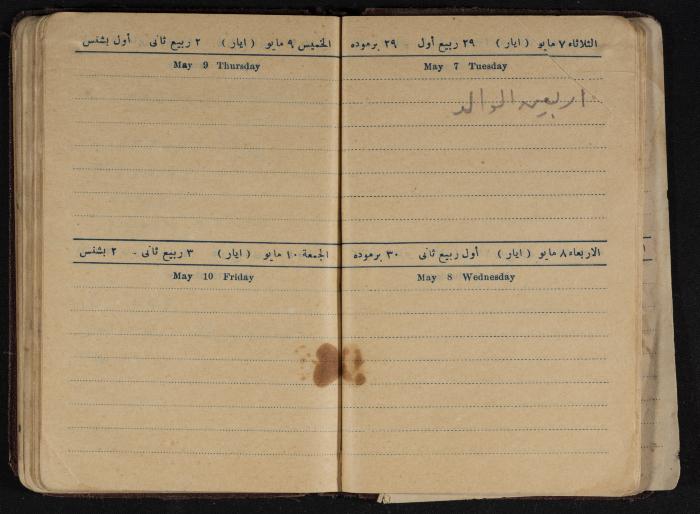 الثلاثاء ٧ مايو (ايار) ٢٩ ربيع أول ٢٩ برموده
May 7 Tuesday
اربعين الوالد
الاربعاء ٨ مايو (ايار) أول ربيع ثانى ٣٠ برموده
May 8 Wednesday
الخميس ٩ مايو (ايار) ٢ ربيع ثانى أول بشنس
May 9 Thursday
الجمعة ١٠ مايو (ايار) ٣ ربيع ثانى - ٢ بشنس
May 10 Friday